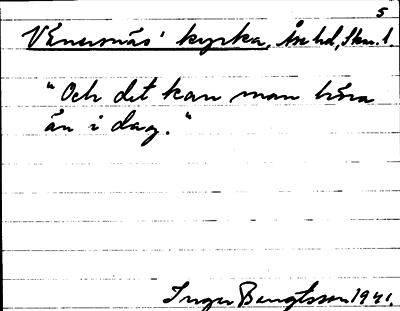 5
V Enersnäs' kyrka, Åse hd, Skar. l.
"Och det kan man höra
än i dag."
Inger Bengtsson 1941.